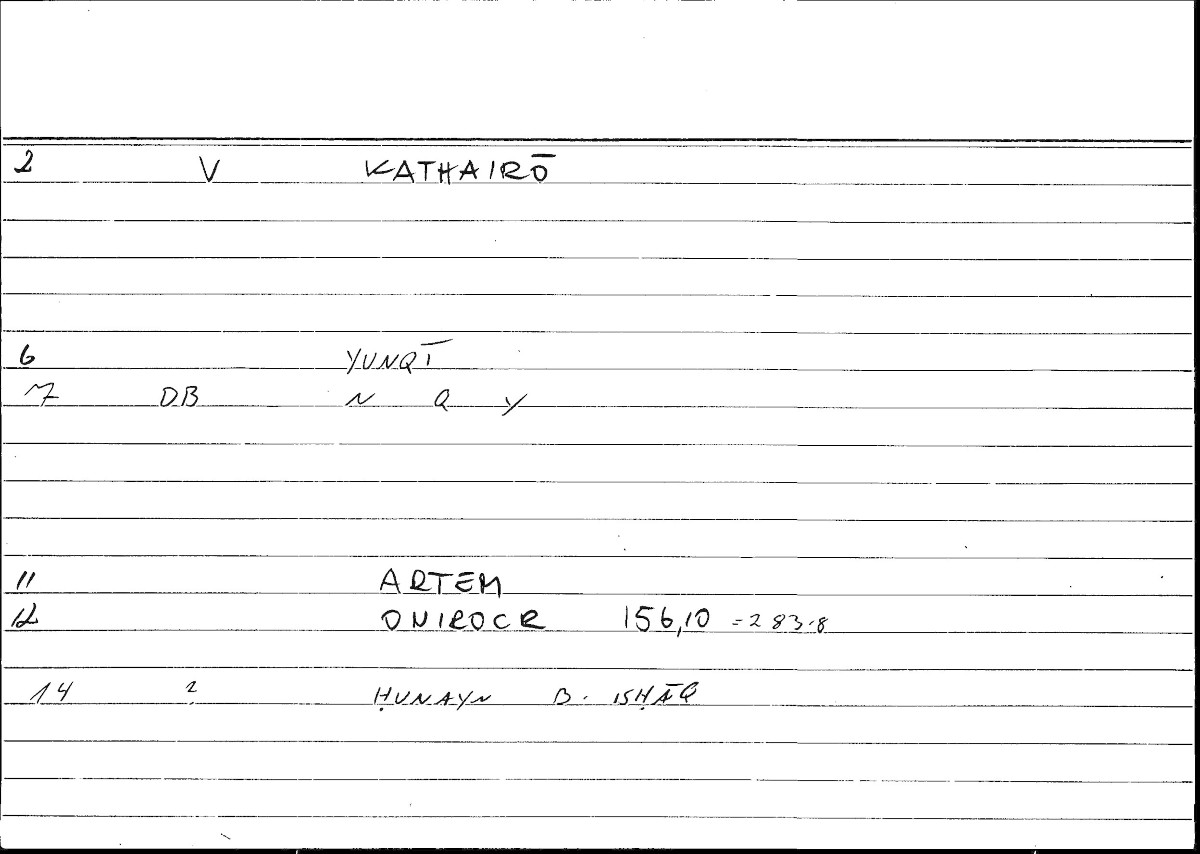 2 V KATHAIRŌ
6 YUNQĪ
7 DB N Q Y
11 ARTEM
12 ONIROCR 156,10 = 283.8
14 2 ḤUNAYN B. ISḤĀQ